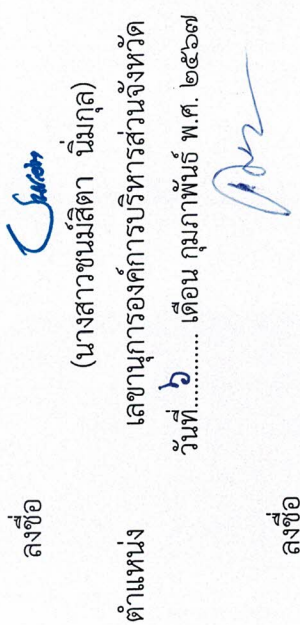 ลงชื่อ
(นางสาวชนม์สิตา นิ่มกุล)
ตำแหน่ง เลขานุการองค์การบริหารส่วนจังหวัด
วันที่ ๖ ............ เดือน กุมภาพันธ์ พ.ศ. ๒๕๖๗
ลงชื่อ